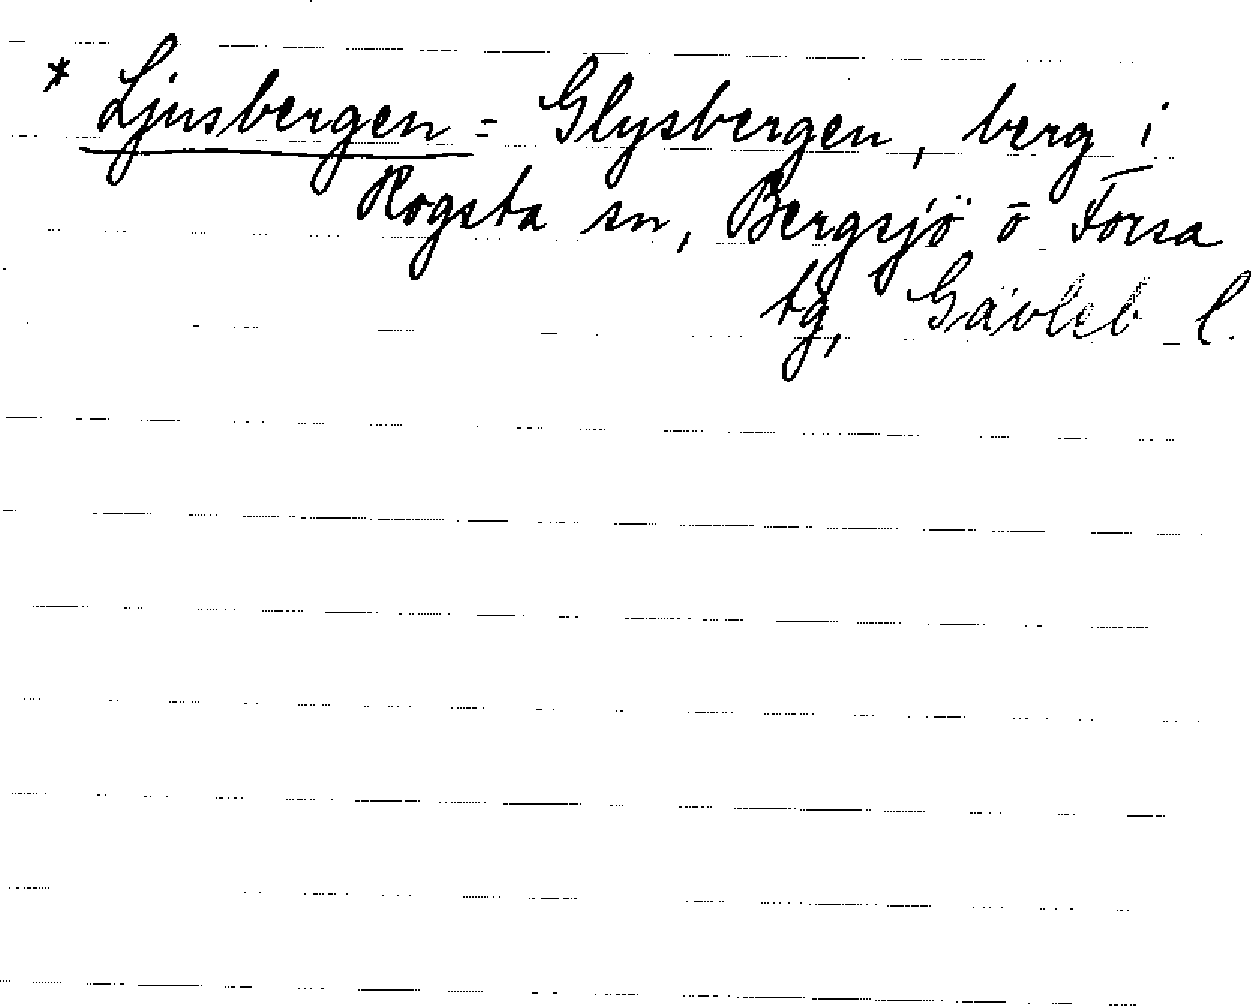 * Ljusbergen = Glysbergen, berg i
Rogsta sn, Bergsjö o Forsa
tg, Gävleb l.